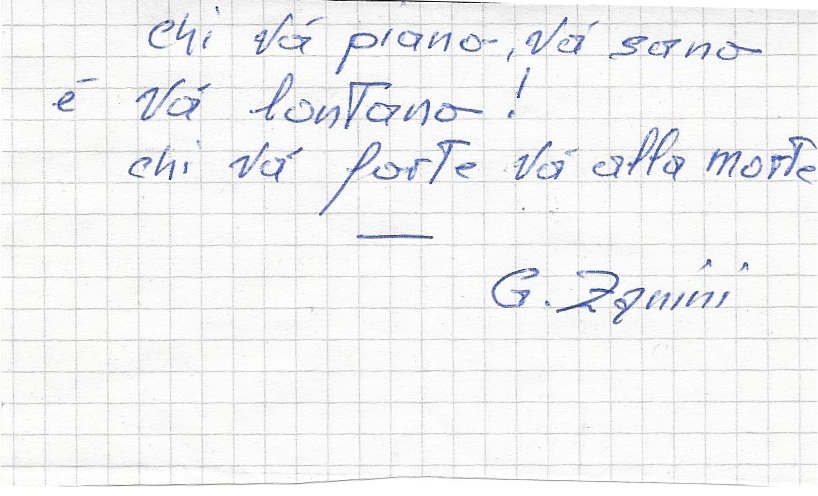 chi vá piano, vá sano
é vá lontano!
chi vá forte vá alla morte
G. Zanini